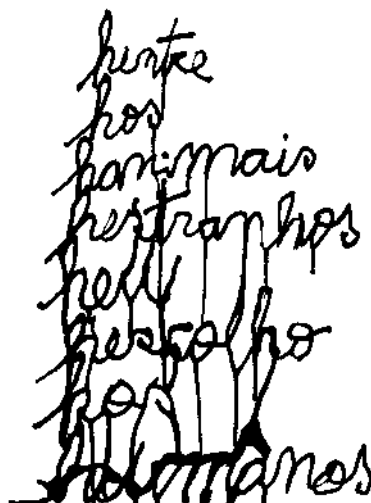 hentre
hos
hanimais
hestranhos
heu
hescolho
hos
humanos